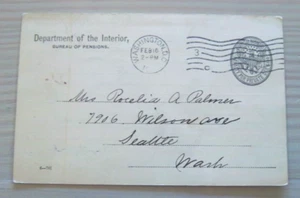 Department of the Interior,
BUREAU OF PENSIONS.
WASHINGTON, D.C.
FEB 18
3
C
Mrs Roselia A Palmer
7916 Wilson ave
Seattle
Wash